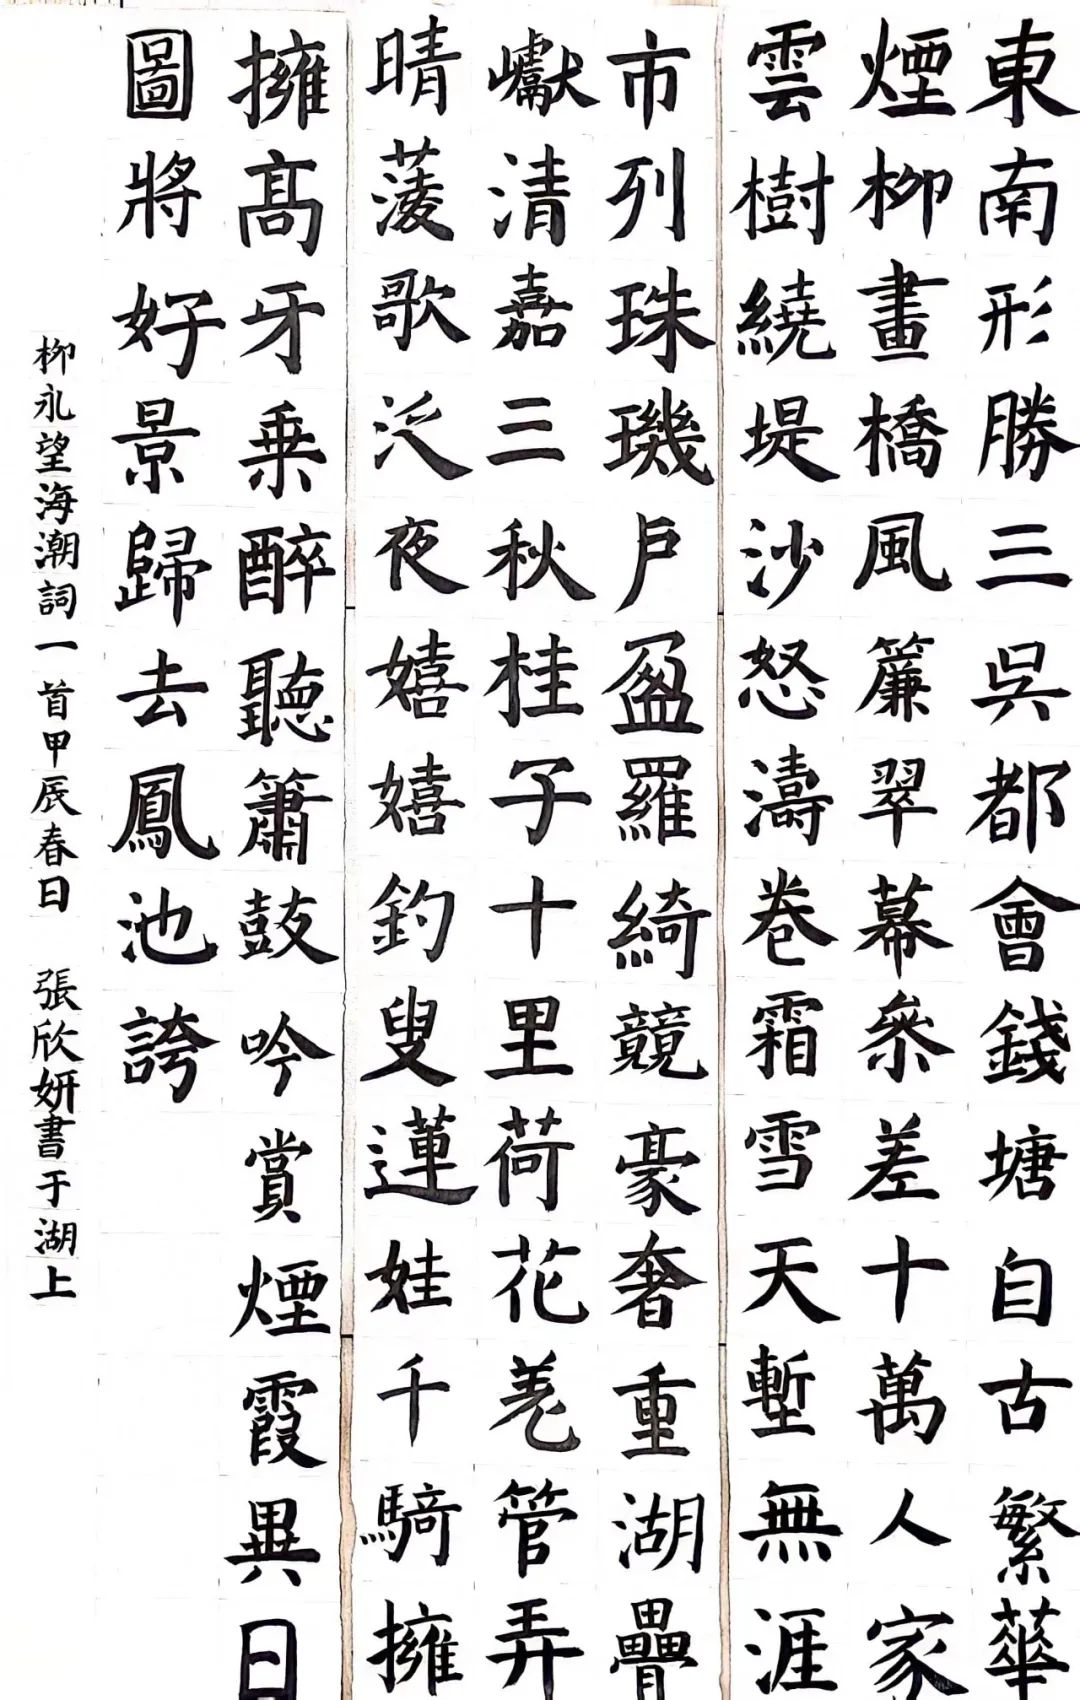 東南形勝三吳都會錢塘自古繁華
煙柳畫橋風簾翠幕叅差十萬人家
雲樹繞堤沙怒濤卷霜雪天塹無涯
市列珠璣戶盈羅綺競豪奢重湖疊
巘清嘉三秋桂子十里荷花羌管弄
晴蔆歌泛夜嬉嬉釣叟蓮娃千騎擁
擁髙牙乗醉聽簫鼓吟賞煙霞異日
圖將好景歸去鳳池誇
柳永望海潮詞一首甲辰春日 張欣妍書于湖上